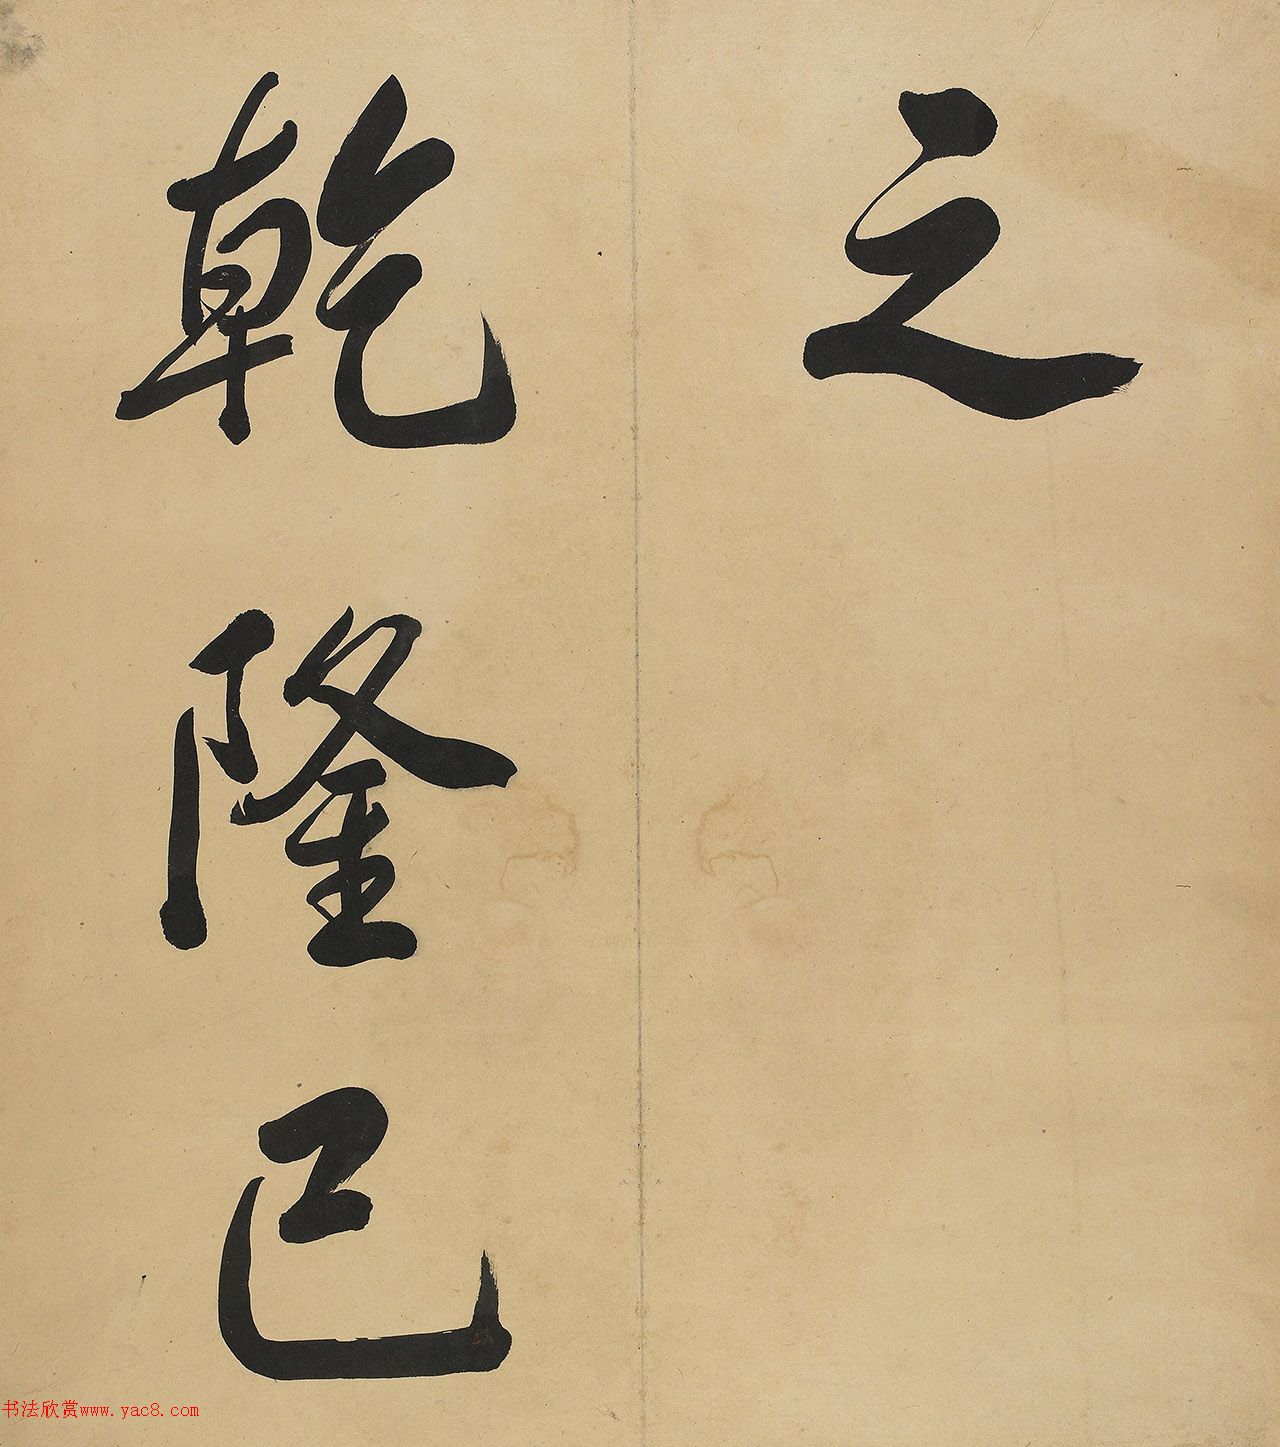 之
乾隆己
书法欣赏www.yac8.com